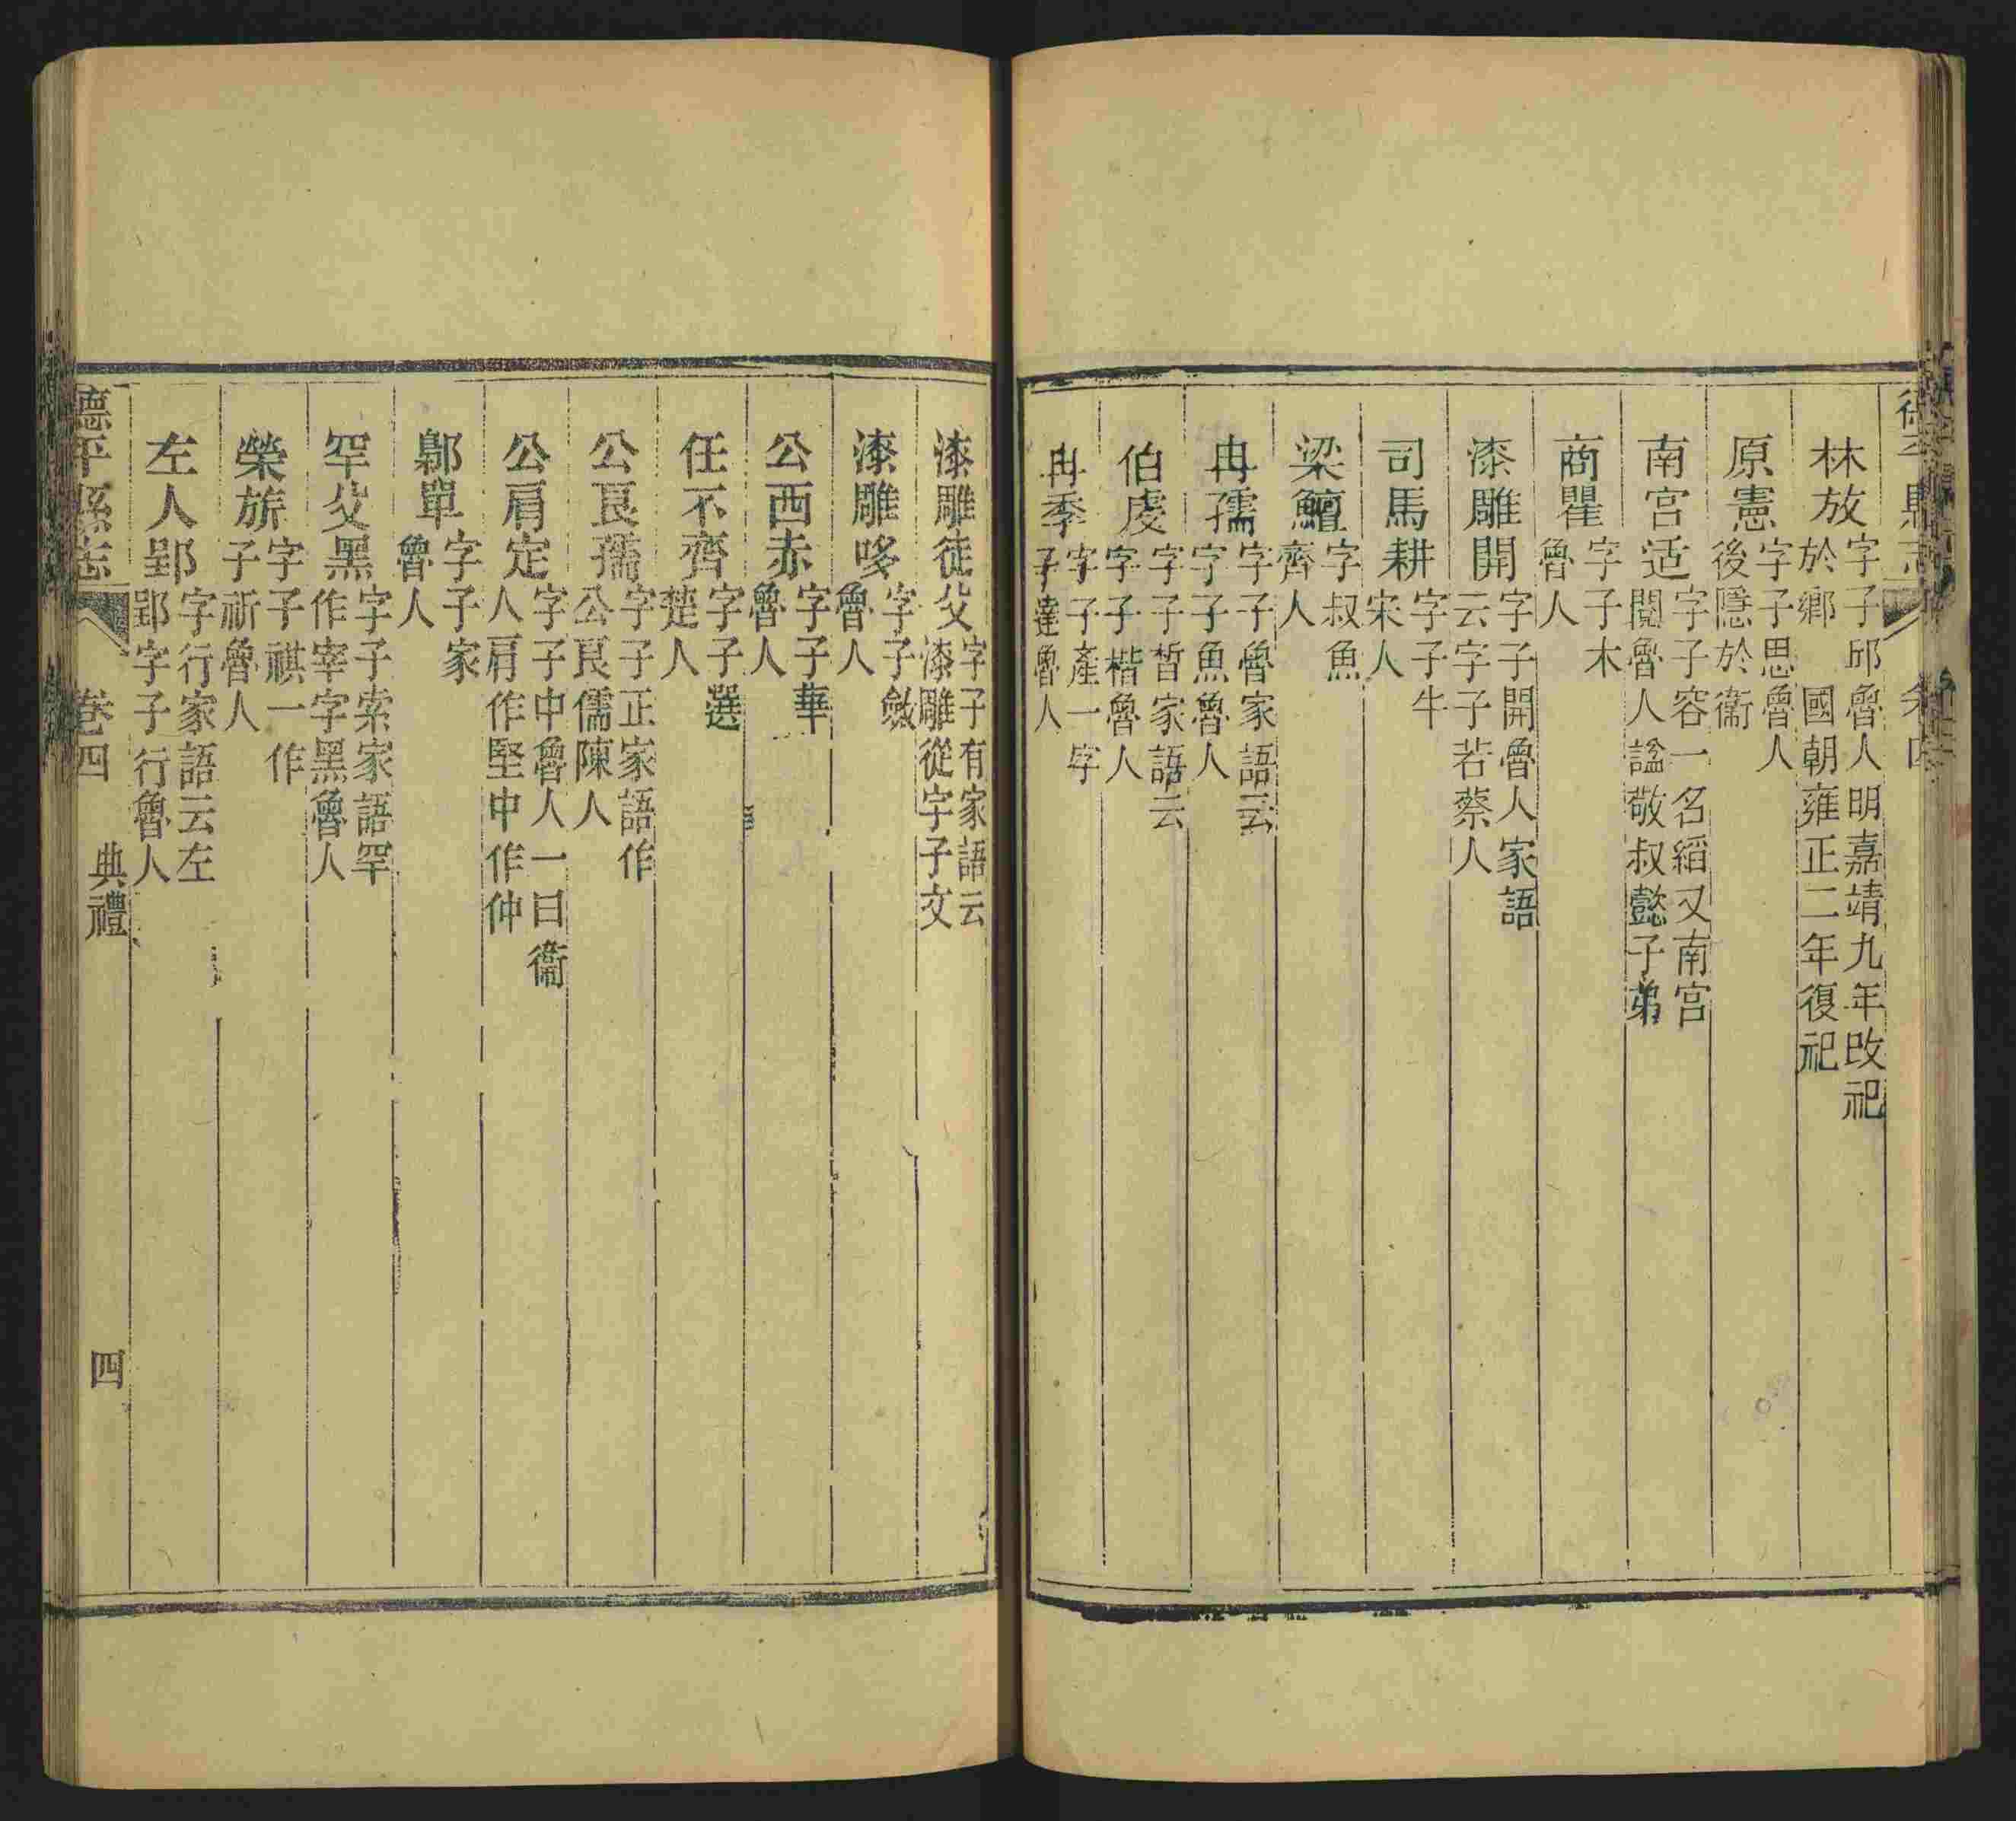 德平縣志 卷四
林放字子邱魯人明嘉靖九年改祀於鄉 國朝雍正二年復祀
原憲字子思魯人後隱於衞
南宮适字子容一名縚又南宮閱魯人諡敬叔懿子弟
商瞿字子木魯人
漆雕開字子開魯人家語云字子若蔡人
司馬耕字子牛宋人
梁鱣字叔魚齊人
冉孺字子魯家語云字子魚魯人
伯虔字子皙家語云字子楷魯人
冉季字子產一字子達魯人
漆雕徒父字子有家語云漆雕從字子文
漆雕哆字子斂魯人
公西赤字子華魯人
任不齊字子選楚人
公良孺字子正家語作公良儒陳人
公肩定字子中魯人一曰衞人肩作堅中作仲
鄡單字子家魯人
罕父黑字子索家語罕作宰字黑魯人
榮旂字子祺一作子祈魯人
左人郢字行家語云左郢字子行魯人
德平縣志 卷四 典禮 四